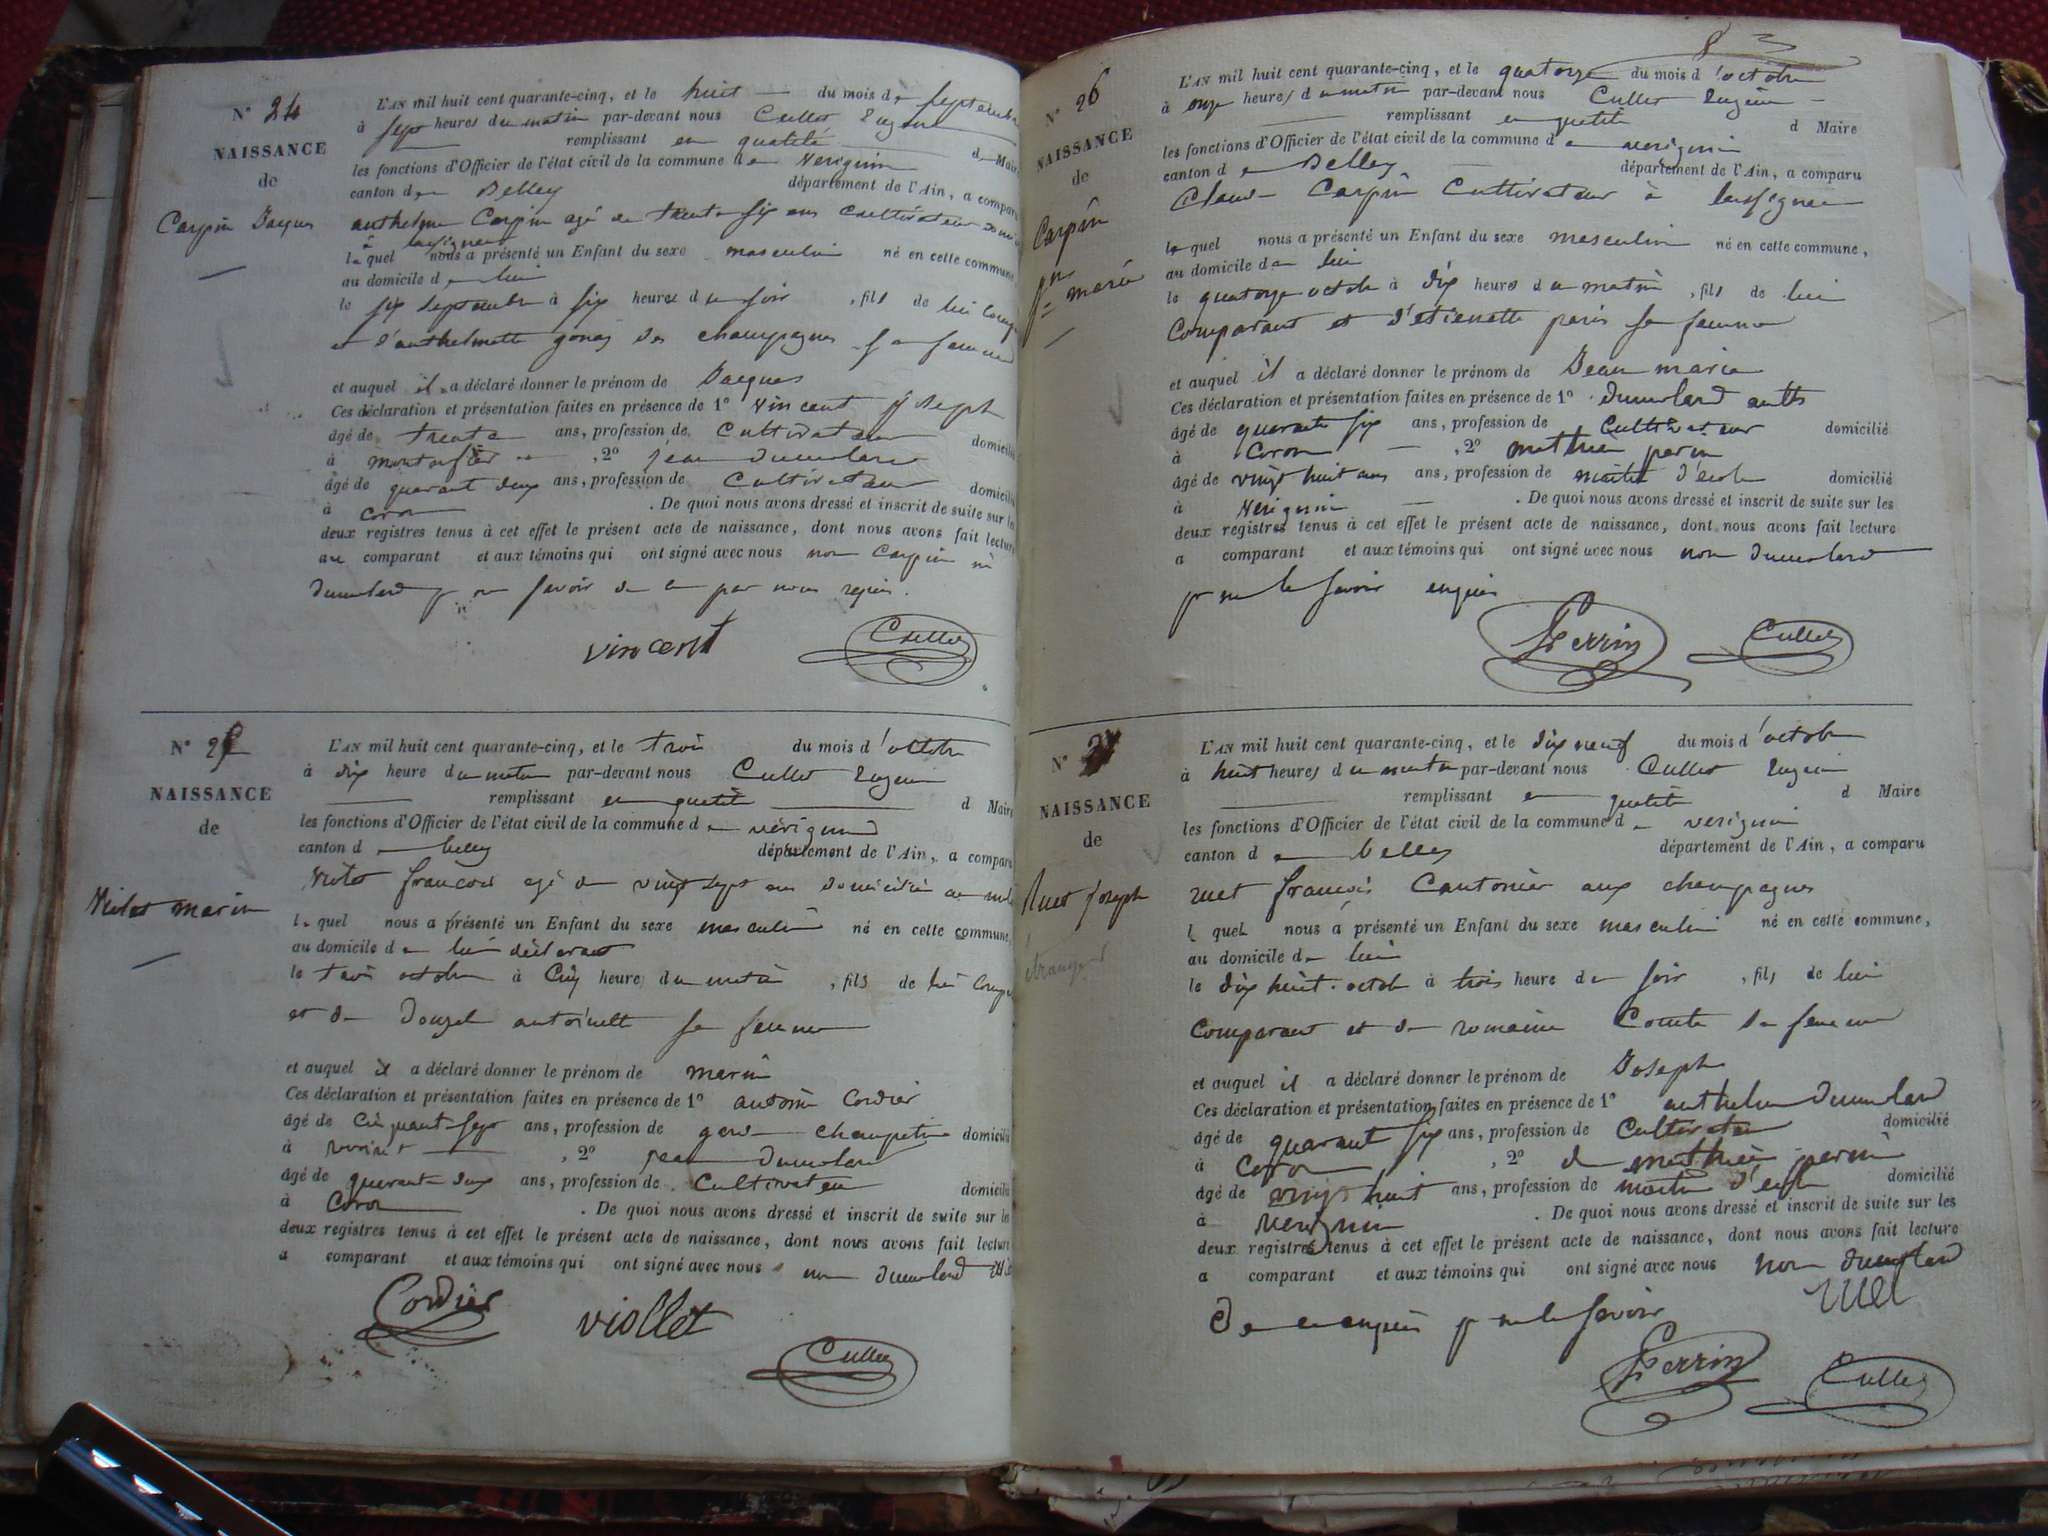 N° 24
NAISSANCE
de
Carpin Jacques
L'AN mil huit cent quarante-cinq, et le huit du mois de septembre
à sept heures du matin par-devant nous Cullet Eugene
remplissant en qualité de Maire
les fonctions d'Officier de l'état civil de la commune de Verignin
canton de Belley département de l'Ain, a comparu
anthelme Carpin agé de trente six ans Cultivateur
à lassignieu
lequel nous a présenté un Enfant du sexe masculin né en cette commune
au domicile de lui
le six septembre à six heures du soir, fils de lui
et d'anthelmette des champagnes sa femme
et auquel il a déclaré donner le prénom de Jacques
Ces déclaration et présentation faites en présence de 1° Vincent joseph
âgé de trente ans, profession de Cultivateur domicilié
à , 2° jean Dumolard
âgé de quarant deux ans, profession de Cultivateur domicilié
à Coron . De quoi nous avons dressé et inscrit de suite sur les
deux registres tenus à cet effet le présent acte de naissance, dont nous avons fait lecture
au comparant et aux témoins qui ont signé avec nous non Carpin ni
Dumolard p ne savoir de ce par nous requis.
vincent Cullet
N° 25
NAISSANCE
de
Violet marin
L'AN mil huit cent quarante-cinq, et le trois du mois d'octobre
à dix heure du matin par-devant nous Cullet Eugene
remplissant en qualité d Maire
les fonctions d'Officier de l'état civil de la commune de vérignin
canton de belley département de l'Ain, a comparu
Violet francois agé de vingt sept ans domicilié
lequel nous a présenté un Enfant du sexe masculin né en cette commune,
au domicile de lui déclarant
le trois octobre à Cinq heure du matin, fils de lui
et de Douzel antoinette sa femme
et auquel il a déclaré donner le prénom de marin
Ces déclaration et présentation faites en présence de 1° antoine Cordier
âgé de Cinquant sept ans, profession de garde champetre domicilié
à , 2° jean Dumolard
âgé de quarante deux ans, profession de Cultivateur domicilié
à Coron . De quoi nous avons dressé et inscrit de suite sur les
deux registres tenus à cet effet le présent acte de naissance, dont nous avons fait lecture
a comparant et aux témoins qui ont signé avec nous non Dumolard
Cordier viollet
Cullet
8
N° 26
NAISSANCE
de
Carpin
jn
marie
L'AN mil huit cent quarante-cinq, et le quatorze du mois d'octobre
à onze heures du matin par-devant nous Cullet Eugene
remplissant en qualité d Maire
les fonctions d'Officier de l'état civil de la commune de verignin
canton de Belley département de l'Ain, a comparu
Claude Carpin Cultivateur à lassignieu
lequel nous a présenté un Enfant du sexe masculin né en cette commune,
au domicile de lui
le quatorze octobre à dix heures du matin, fils de lui
Comparant et d'etienette perin sa femme
et auquel il a déclaré donner le prénom de Jean marie
Ces déclaration et présentation faites en présence de 1° Dumolard
âgé de quarante six ans, profession de Cultivateur domicilié
à Coron , 2° mathieu perin
âgé de vingt huit ans ans, profession de maître d'école domicilié
à Verignin . De quoi nous avons dressé et inscrit de suite sur les
deux registres tenus à cet effet le présent acte de naissance, dont nous avons fait lecture
a comparant et aux témoins qui ont signé avec nous non Dumolard
p ne le savoir enquis
Perrin Cullet
N° 27
NAISSANCE
de
Ruet joseph
L'AN mil huit cent quarante-cinq, et le dix neuf du mois d'octobre
à huit heures du matin par-devant nous Cullet Eugene
remplissant en qualité d Maire
les fonctions d'Officier de l'état civil de la commune de verignin
canton de belley département de l'Ain, a comparu
ruet francois Cantonier aux champagnes
lequel nous a présenté un Enfant du sexe masculin né en cette commune,
au domicile de lui
le dix huit octobre à trois heure du soir, fils de lui
Comparant et de romaine Comte sa femme
et auquel il a déclaré donner le prénom de Joseph
Ces déclaration et présentation faites en présence de 1° anthelme Dumolard
âgé de quarant six ans, profession de Cultivateur domicilié
à Coron , 2° de mathieu perin
âgé de vingt huit ans, profession de maître d'école domicilié
à verignin . De quoi nous avons dressé et inscrit de suite sur les
deux registres tenus à cet effet le présent acte de naissance, dont nous avons fait lecture
a comparant et aux témoins qui ont signé avec nous non Dumolard
De ce enquis p ne le savoir ruet
Perrin Cullet